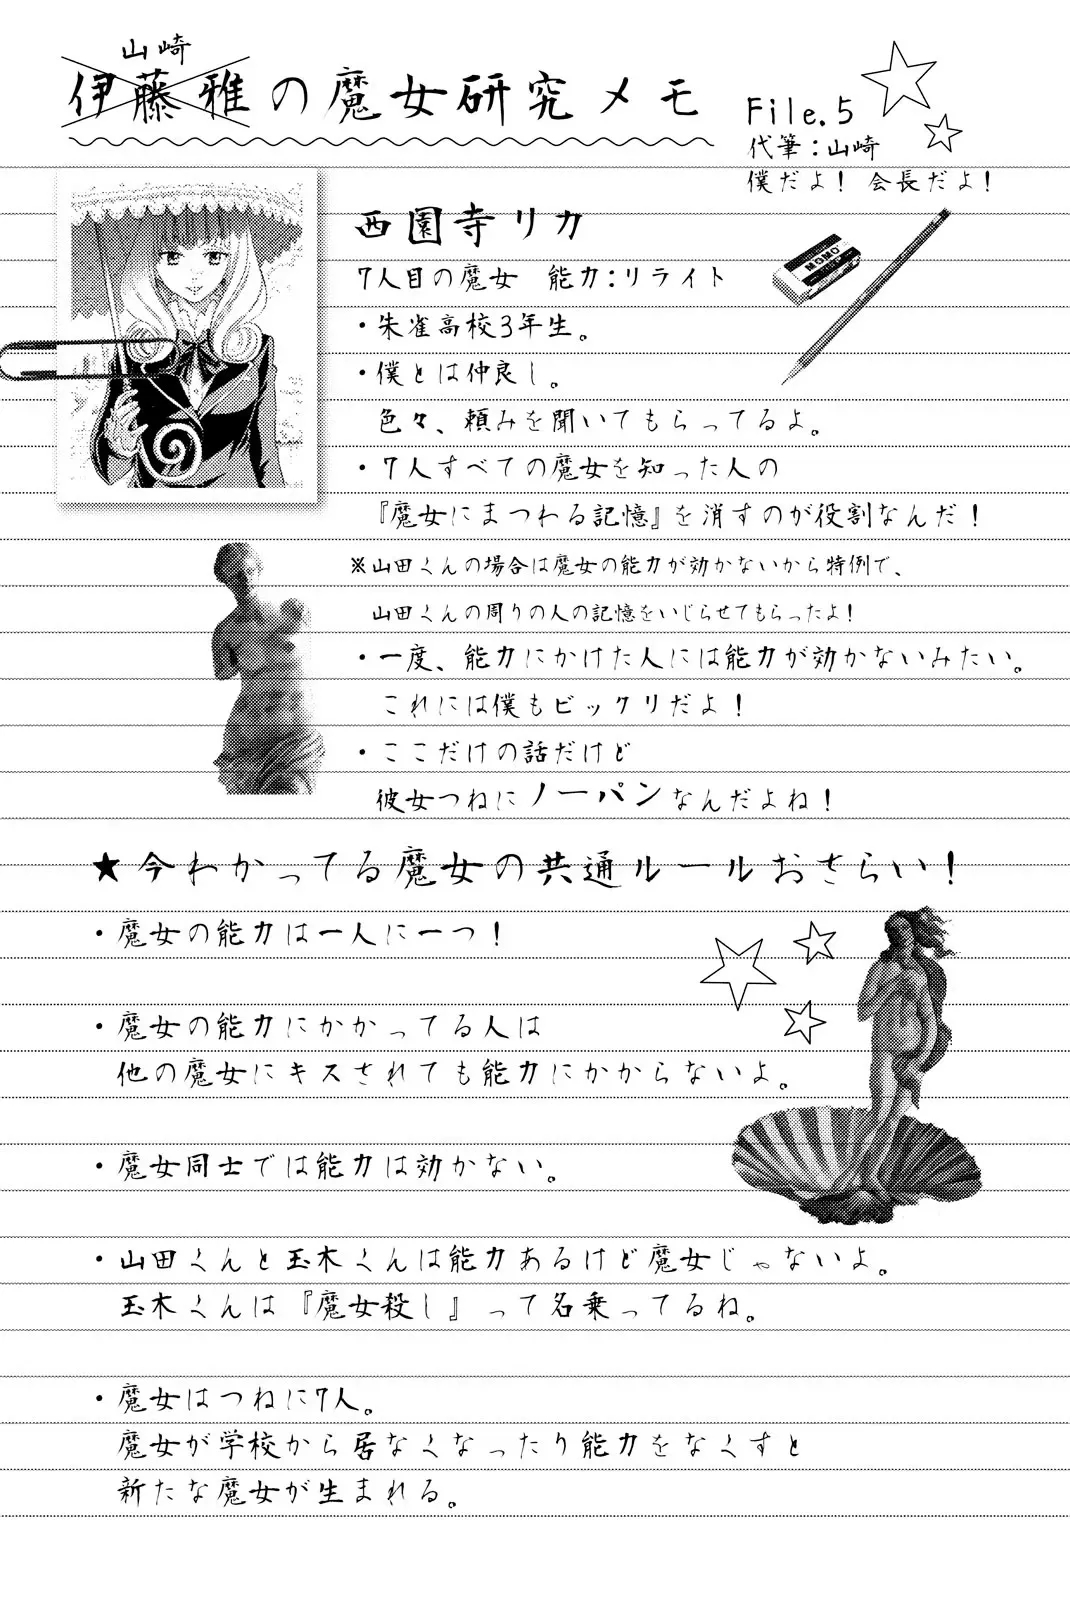 山崎
伊藤 雅の魔女研究メモ
File.5
代筆：山崎
僕だよ！ 会長だよ！
西園寺リカ
7人目の魔女　能力：リライト
・朱雀高校3年生。
・僕とは仲良し。
色々、頼みを聞いてもらってるよ。
・7人すべての魔女を知った人の
『魔女にまつわる記憶』を消すのが役割なんだ！
※山田くんの場合は魔女の能力が効かないから特例で、
山田くんの周りの人の記憶をいじらせてもらったよ！
・一度、能力にかけた人には能力が効かないみたい。
これには僕もビックリだよ！
・ここだけの話だけど
彼女つねにノーパンなんだよね！
MOMO
★今わかってる魔女の共通ルールおさらい！
・魔女の能力は一人に一つ！
・魔女の能力にかかってる人は
他の魔女にキスされても能力にかからないよ。
・魔女同士では能力は効かない。
・山田くんと玉木くんは能力あるけど魔女じゃないよ。
玉木くんは『魔女殺し』って名乗ってるね。
・魔女はつねに7人。
魔女が学校から居なくなったり能力をなくすと
新たな魔女が生まれる。